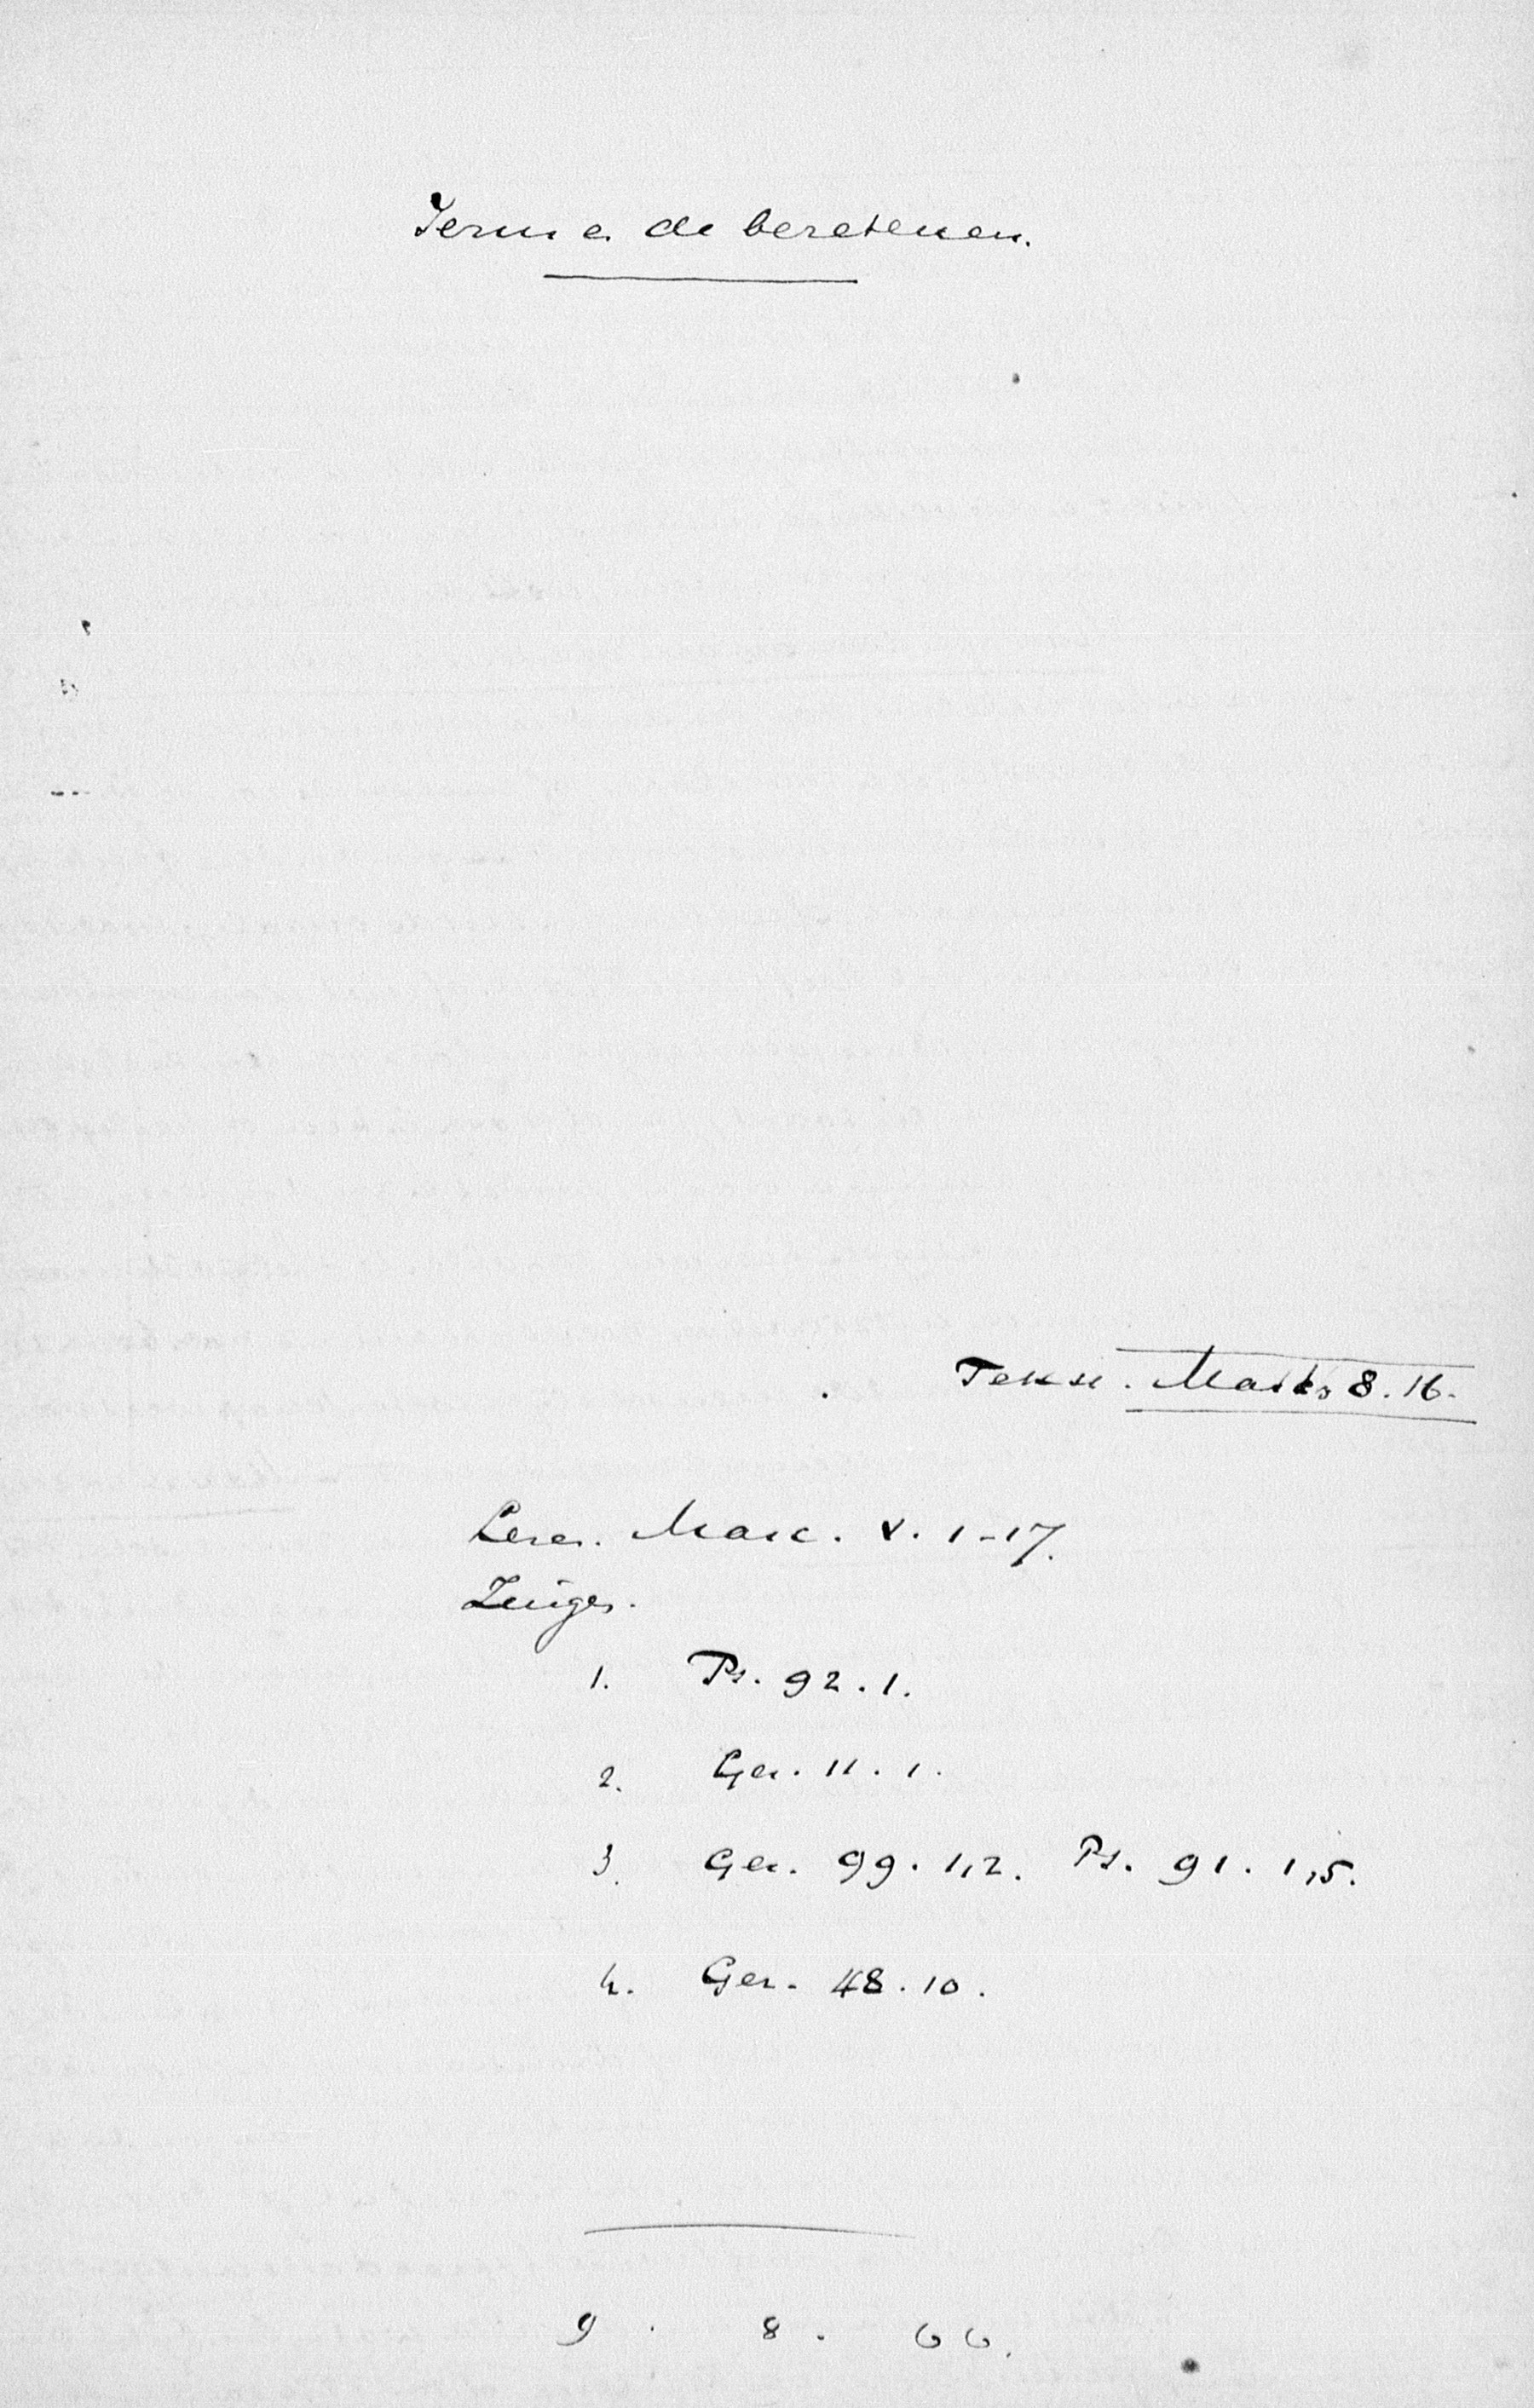 Jezus en de bezetenen.
Tekst. Matth 8. 16.
Lezen. Marc. V. 1-17.
Zingen.
1. Ps. 92. 1.
2. Gez. 11. 1.
3. Gez. 99. 1,2. Ps. 91. 1,5.
4. Gez. 48. 10.
9. 8. 66.